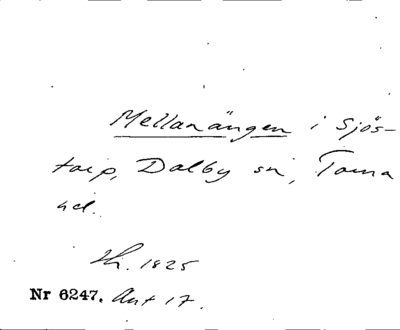 Mellanängen i Sjös-
torp, Dalby sn, Torna
hd.
Sk. 1825
Nr 6247. Ant 17.